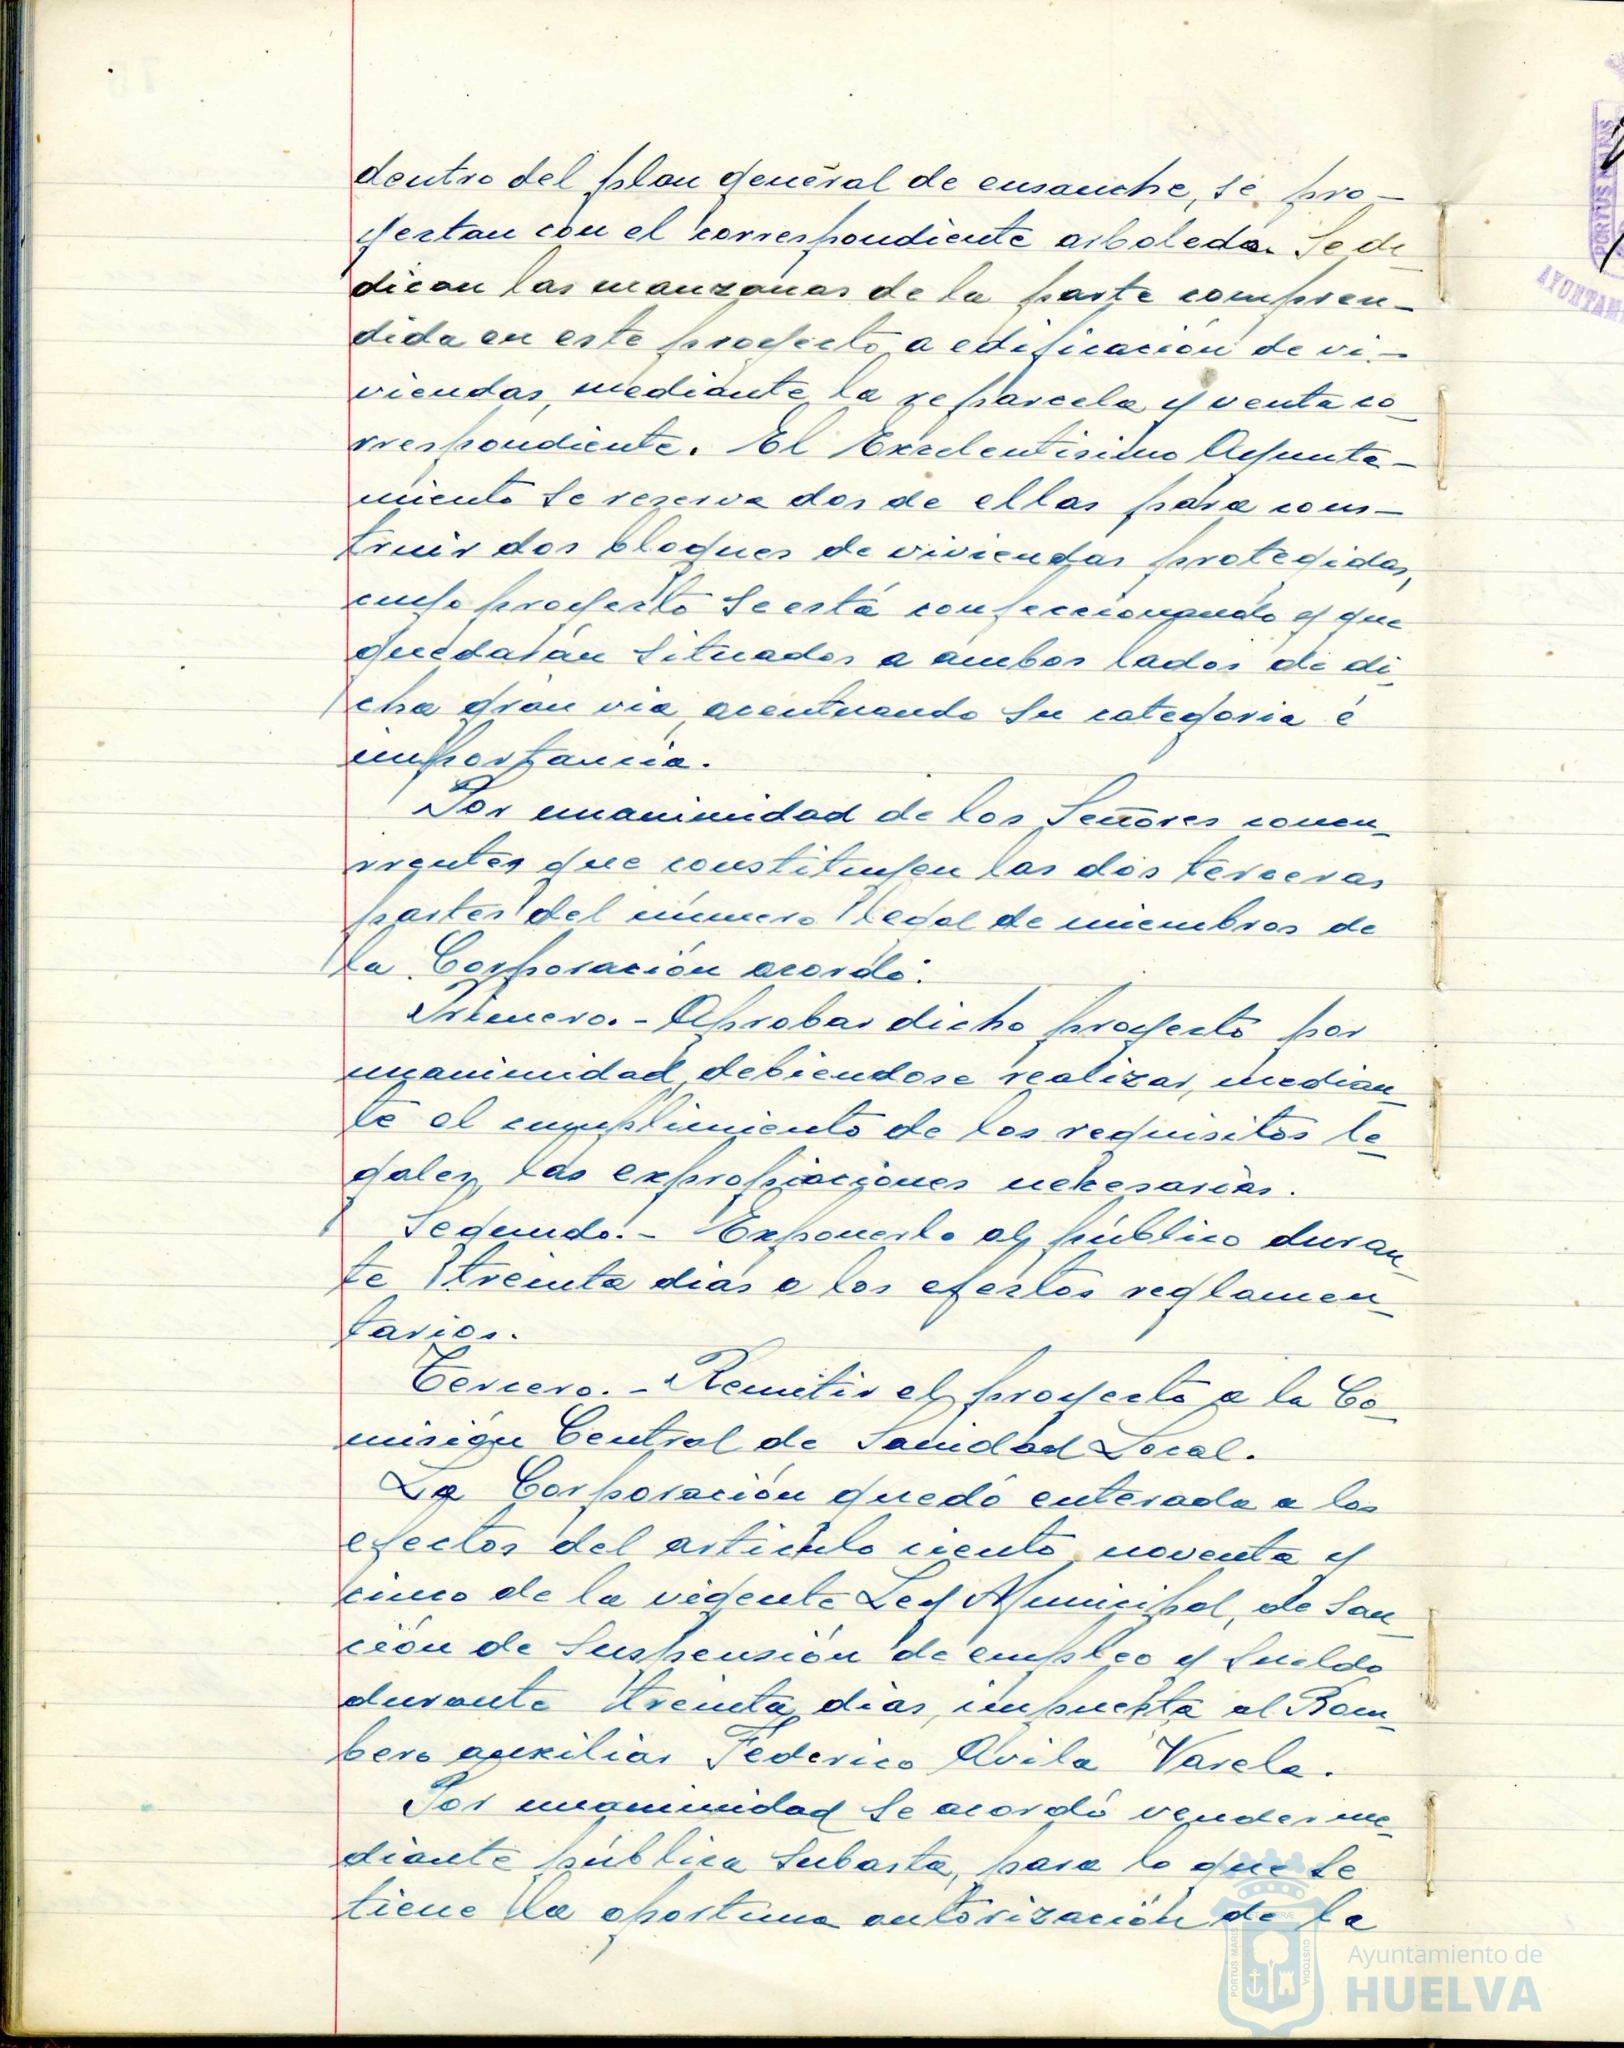 dentro del plan general de ensanche, se pro-
yectan con el correspondiente arboleda. Se de-
dican las manzanas de la parte compren-
dida en este proyecto a edificación de vi-
viendas, mediante la reparcela y venta co-
rrespondiente. El Excelentisimo Ayunta-
miento se reserva dos de ellas para cons-
truir dos bloques de viviendas protegidas,
cuyo proyecto se está confeccionando y que
quedarán situados a ambos lados de di-
cha gran via, acentuando su categoria é
importancia.
Por unanimidad de los Señores concu-
rrentes que constituyen las dos terceras
partes del número legal de miembros de
la Corporación acordó:
Primero.- Aprobar dicho proyecto por
unanimidad, debiendose realizar, median-
te el cumplimiento de los requisitos le-
gales, las expropiaciones necesarias.
Segundo.- Exponerlo al público duran-
te treinta dias a los efectos reglamen-
tarios.
Tercero.- Remitir el proyecto a la Co-
misión Central de Sanidad Local.
La Corporación quedó enterada a los
efectos del articulo ciento noventa y
cinco de la vigente Ley Municipal, de San-
ción de suspensión de empleo y sueldo
durante treinta dias, impuesta al Bom-
bero auxiliar Federico Avila Varela.
Por unanimidad se acordó vender me-
diante pública subasta, para lo que se
tiene la oportuna autorización de la
PORTUS MARIS
AYUNTAM
PORTUS MARIS
CUSTODIA
Ayuntamiento de
HUELVA